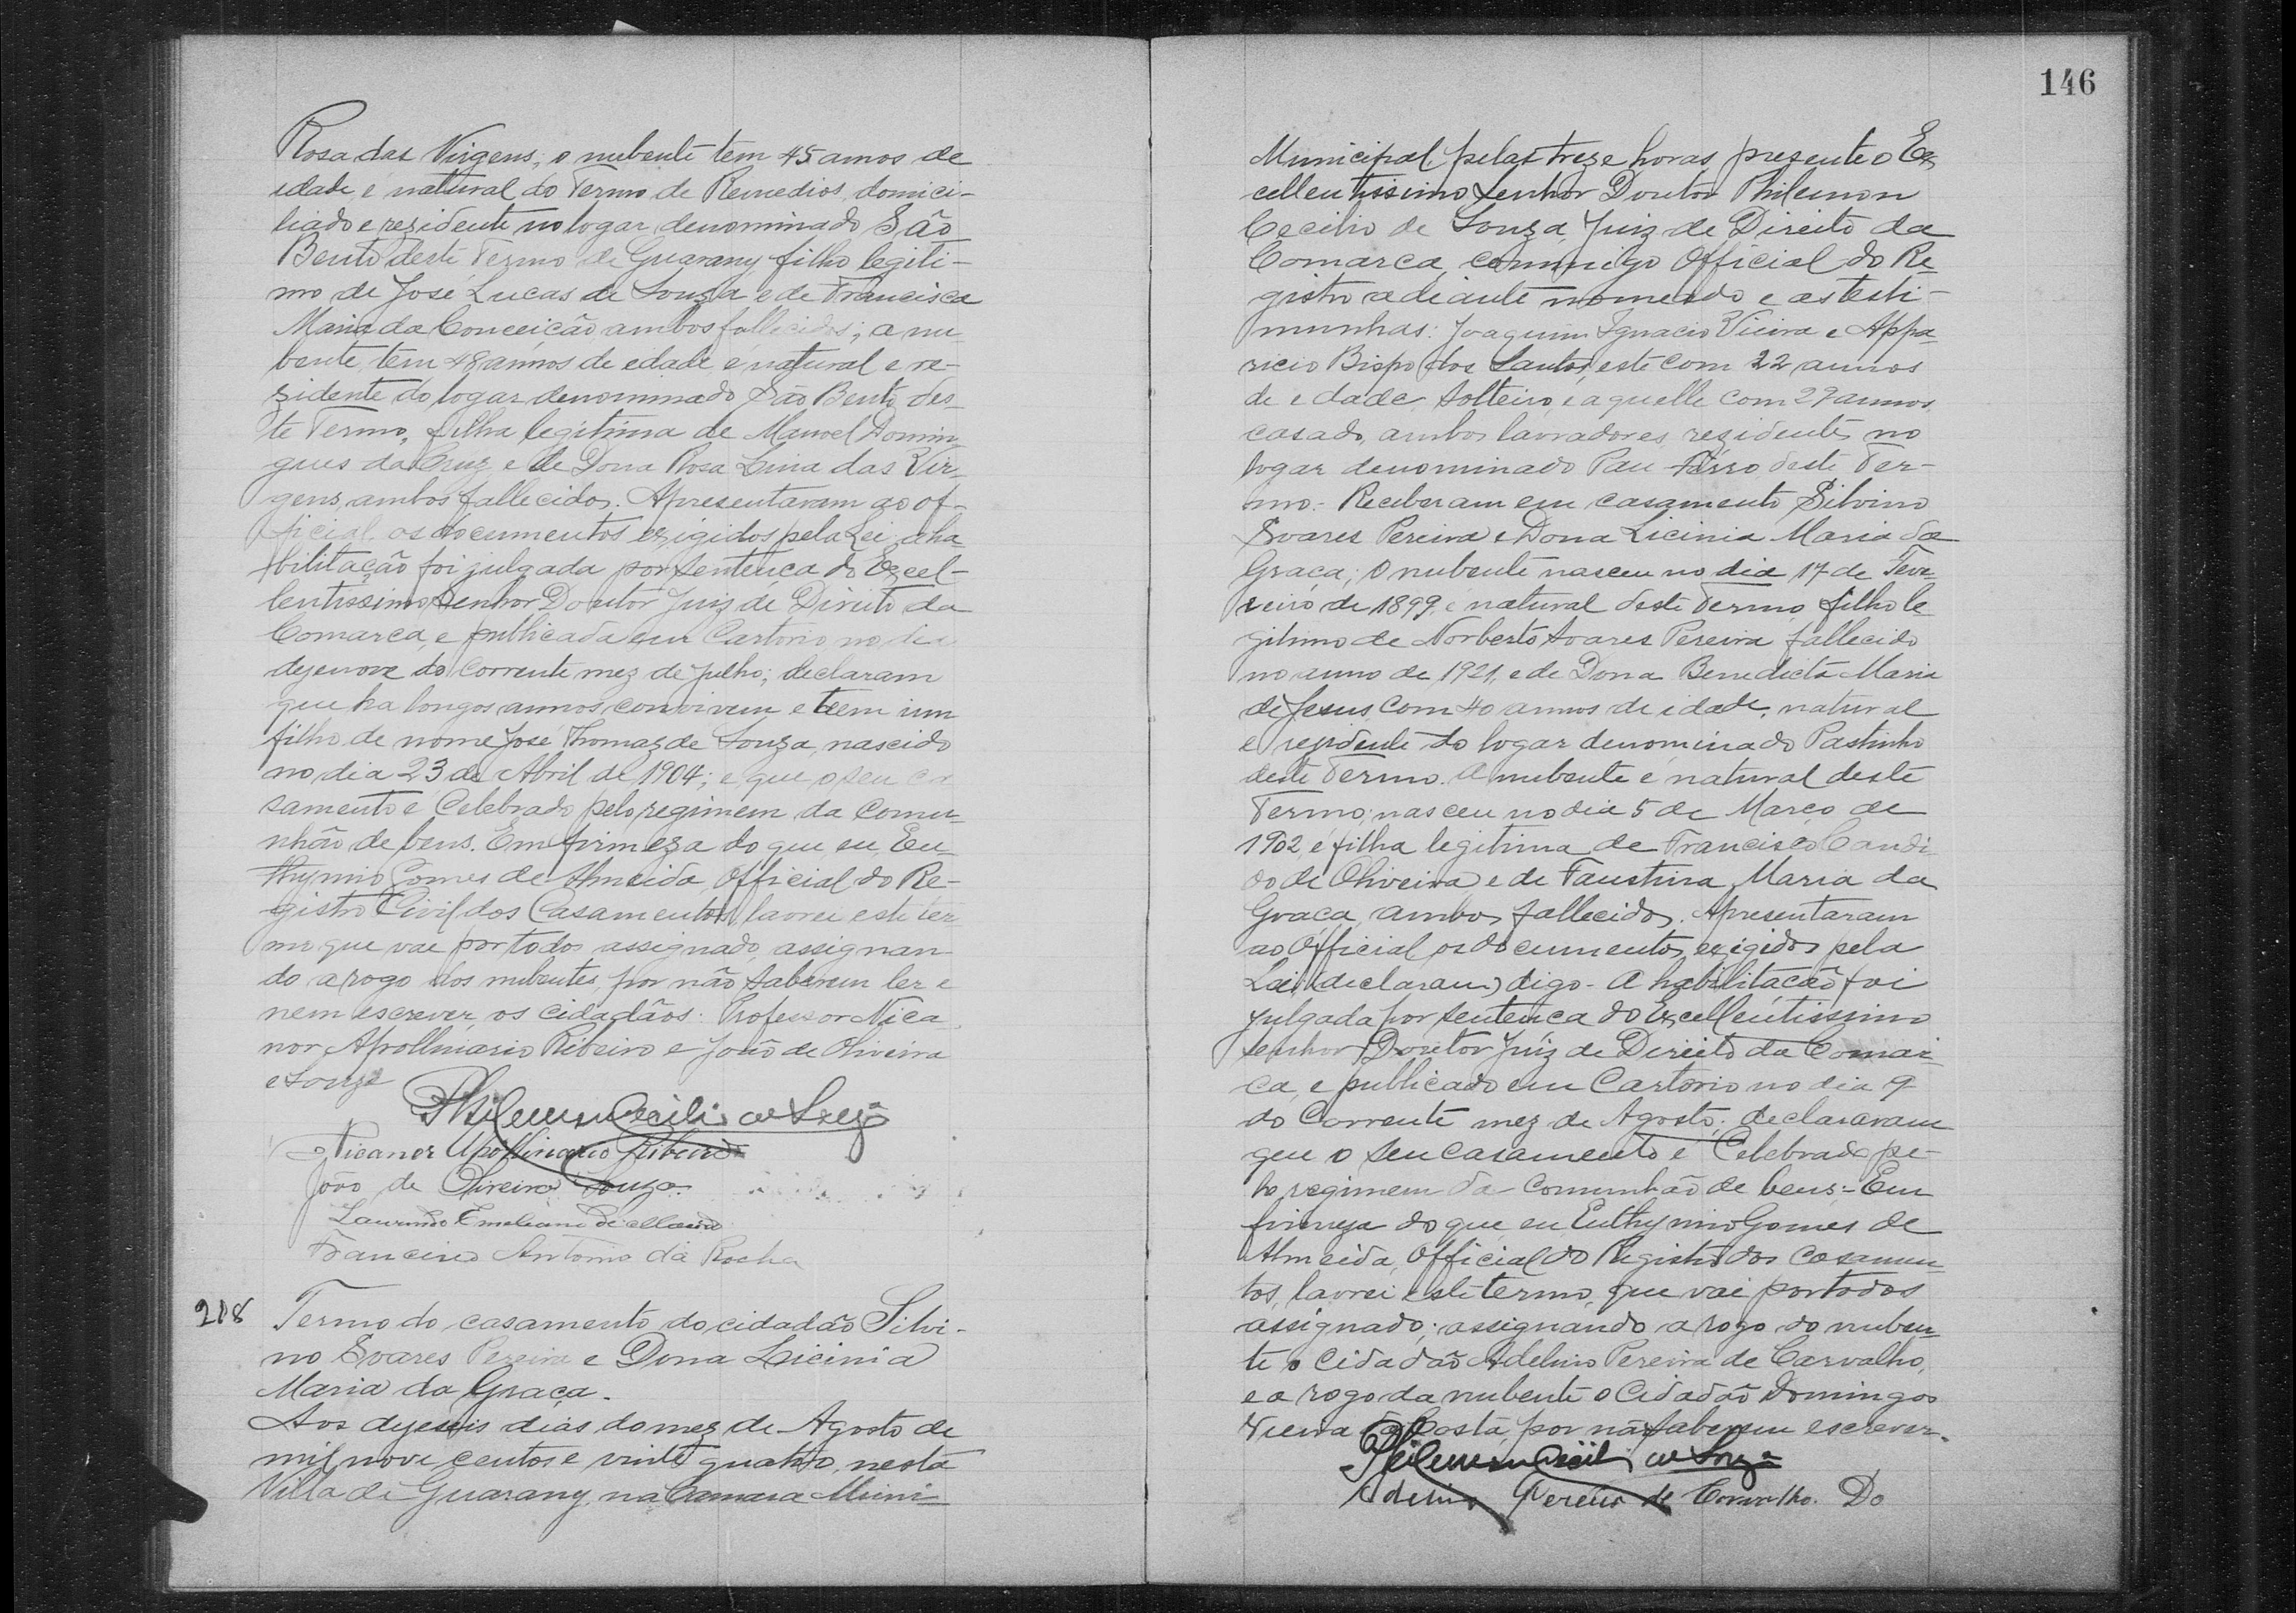 Rosa das Virgens, o nubente tem 45 annos de
idade e natural do Termo de Remedios, domici-
liado e rezidente no logar denominado São
Bento deste Termo de Guarany filho legiti-
mo de José Lucas de Souza e de Francisca
Maria da Conceição ambos fallecidos; a nu
bente, tem 48 annos de edade e natural e re-
zidente do logar denominado São Bento des-
te Termo, filha legitima de Manoel Domin
gues da Cruz e de Dona Rosa Lina das Vir-
gens, ambos fallecidos. Apresentaram ao of-
ficial os documentos exigidos pela Lei, a ha
bilitação foi julgada por sentença do Excel-
lentissimo Senhor Doutor Juiz de Direito da
Comarca, e publicada em Cartorio no dia
dezenove do corrente mez de Julho; declaram
que ha longos annos convivem e teem um
filho de nome José Thomaz de Souza, nascido
no dia 23 de Abril de 1904; e que o seu ca
samento é Celebrado pelo regimem da comu-
nhão de bens. Em firmeza do que eu, Eu-
thymio Gomes de Almeida, Official do Re-
gistro Civil dos Casamentos lavrei este ter
mo que vae por todos assignado, assignan
do a rogo dos nubentes, por não saberem ler e
nem escrever, os cidadãos: Professor Nica
nor Apollinario Ribeiro e João de Oliveira
e Souza
Philemon Cecilio de Souza
Nicanor Apollinario Ribeiro
João de Oliveira Souza.
Laurindo Emeliano de
Francisco Antonio da Rocha
218 Termo do casamento do cidadão Silvi-
no Soares Pereira e Dona Licinia
Maria da Graça.
Aos dezeseis dias do mez de Agosto de
mil nove centos e vinte quatro, nesta
Villa de Guarany, na Camara Muni
146
Municipal, pelas treze horas, presente o Ex
cellentissimo Senhor Doutor Philemon
Cecilio de Souza, Juiz de Direito da
Comarca, commigo Official do Re
gistro adiante nomeado e as testi-
munhas: Joaquim Ignacio Vieira e Appa
ricio Bispo dos Santos, este com 22 annos
de edade, solteiro, e aquelle com 29 annos
casado, ambos lavradores, rezidentes no
logar denominado Pau Ferro deste Ter-
mo. Receberam em casamento Silvino
Soares Pereira e Dona Licinia Maria da
Graça; O nubente nasceu no dia 17 de Feve
reiro de 1899, e natural deste Termo, filho le
gitimo de Norberto Soares Pereira fallecido
no anno de 1921, e de Dona Benedicta Maria
de Jesus, com 40 annos de idade, natural
e rezidente do logar denominado Pastinho
deste Termo. A nubente é natural deste
Termo; nasceu no dia 5 de Março de
1902, e filha legitima de Francisco Candi
do de Oliveira e de Faustina Maria da
Graça, ambos fallecidos. Apresentaram
ao Official os documentos exigidos pela
Lei (declaram) digo - A habilitação foi
julgada por sentença do Excellentissimo
Senhor Doutor Juiz de Direito da Comar
ca, e publicado em Cartorio no dia 9
do Corrente mez de Agosto; declararam
que o seu casamento é Celebrado pe-
lo regimem da Comunhão de bens. - Em
firmeza do que, eu Euthymio Gomes de
Almeida, Official do Registro dos Casamen
tos, lavrei este termo, que vai por todos
assignado; assignando a rogo do nuben
te o Cidadão Adelino Pereira de Carvalho,
e a rogo da nubente o Cidadão Domingos
Vieira da Costa, por não saberem escrever.
Philemon Cecilio de Souza
Adelino Pereira de Carvalho. Do